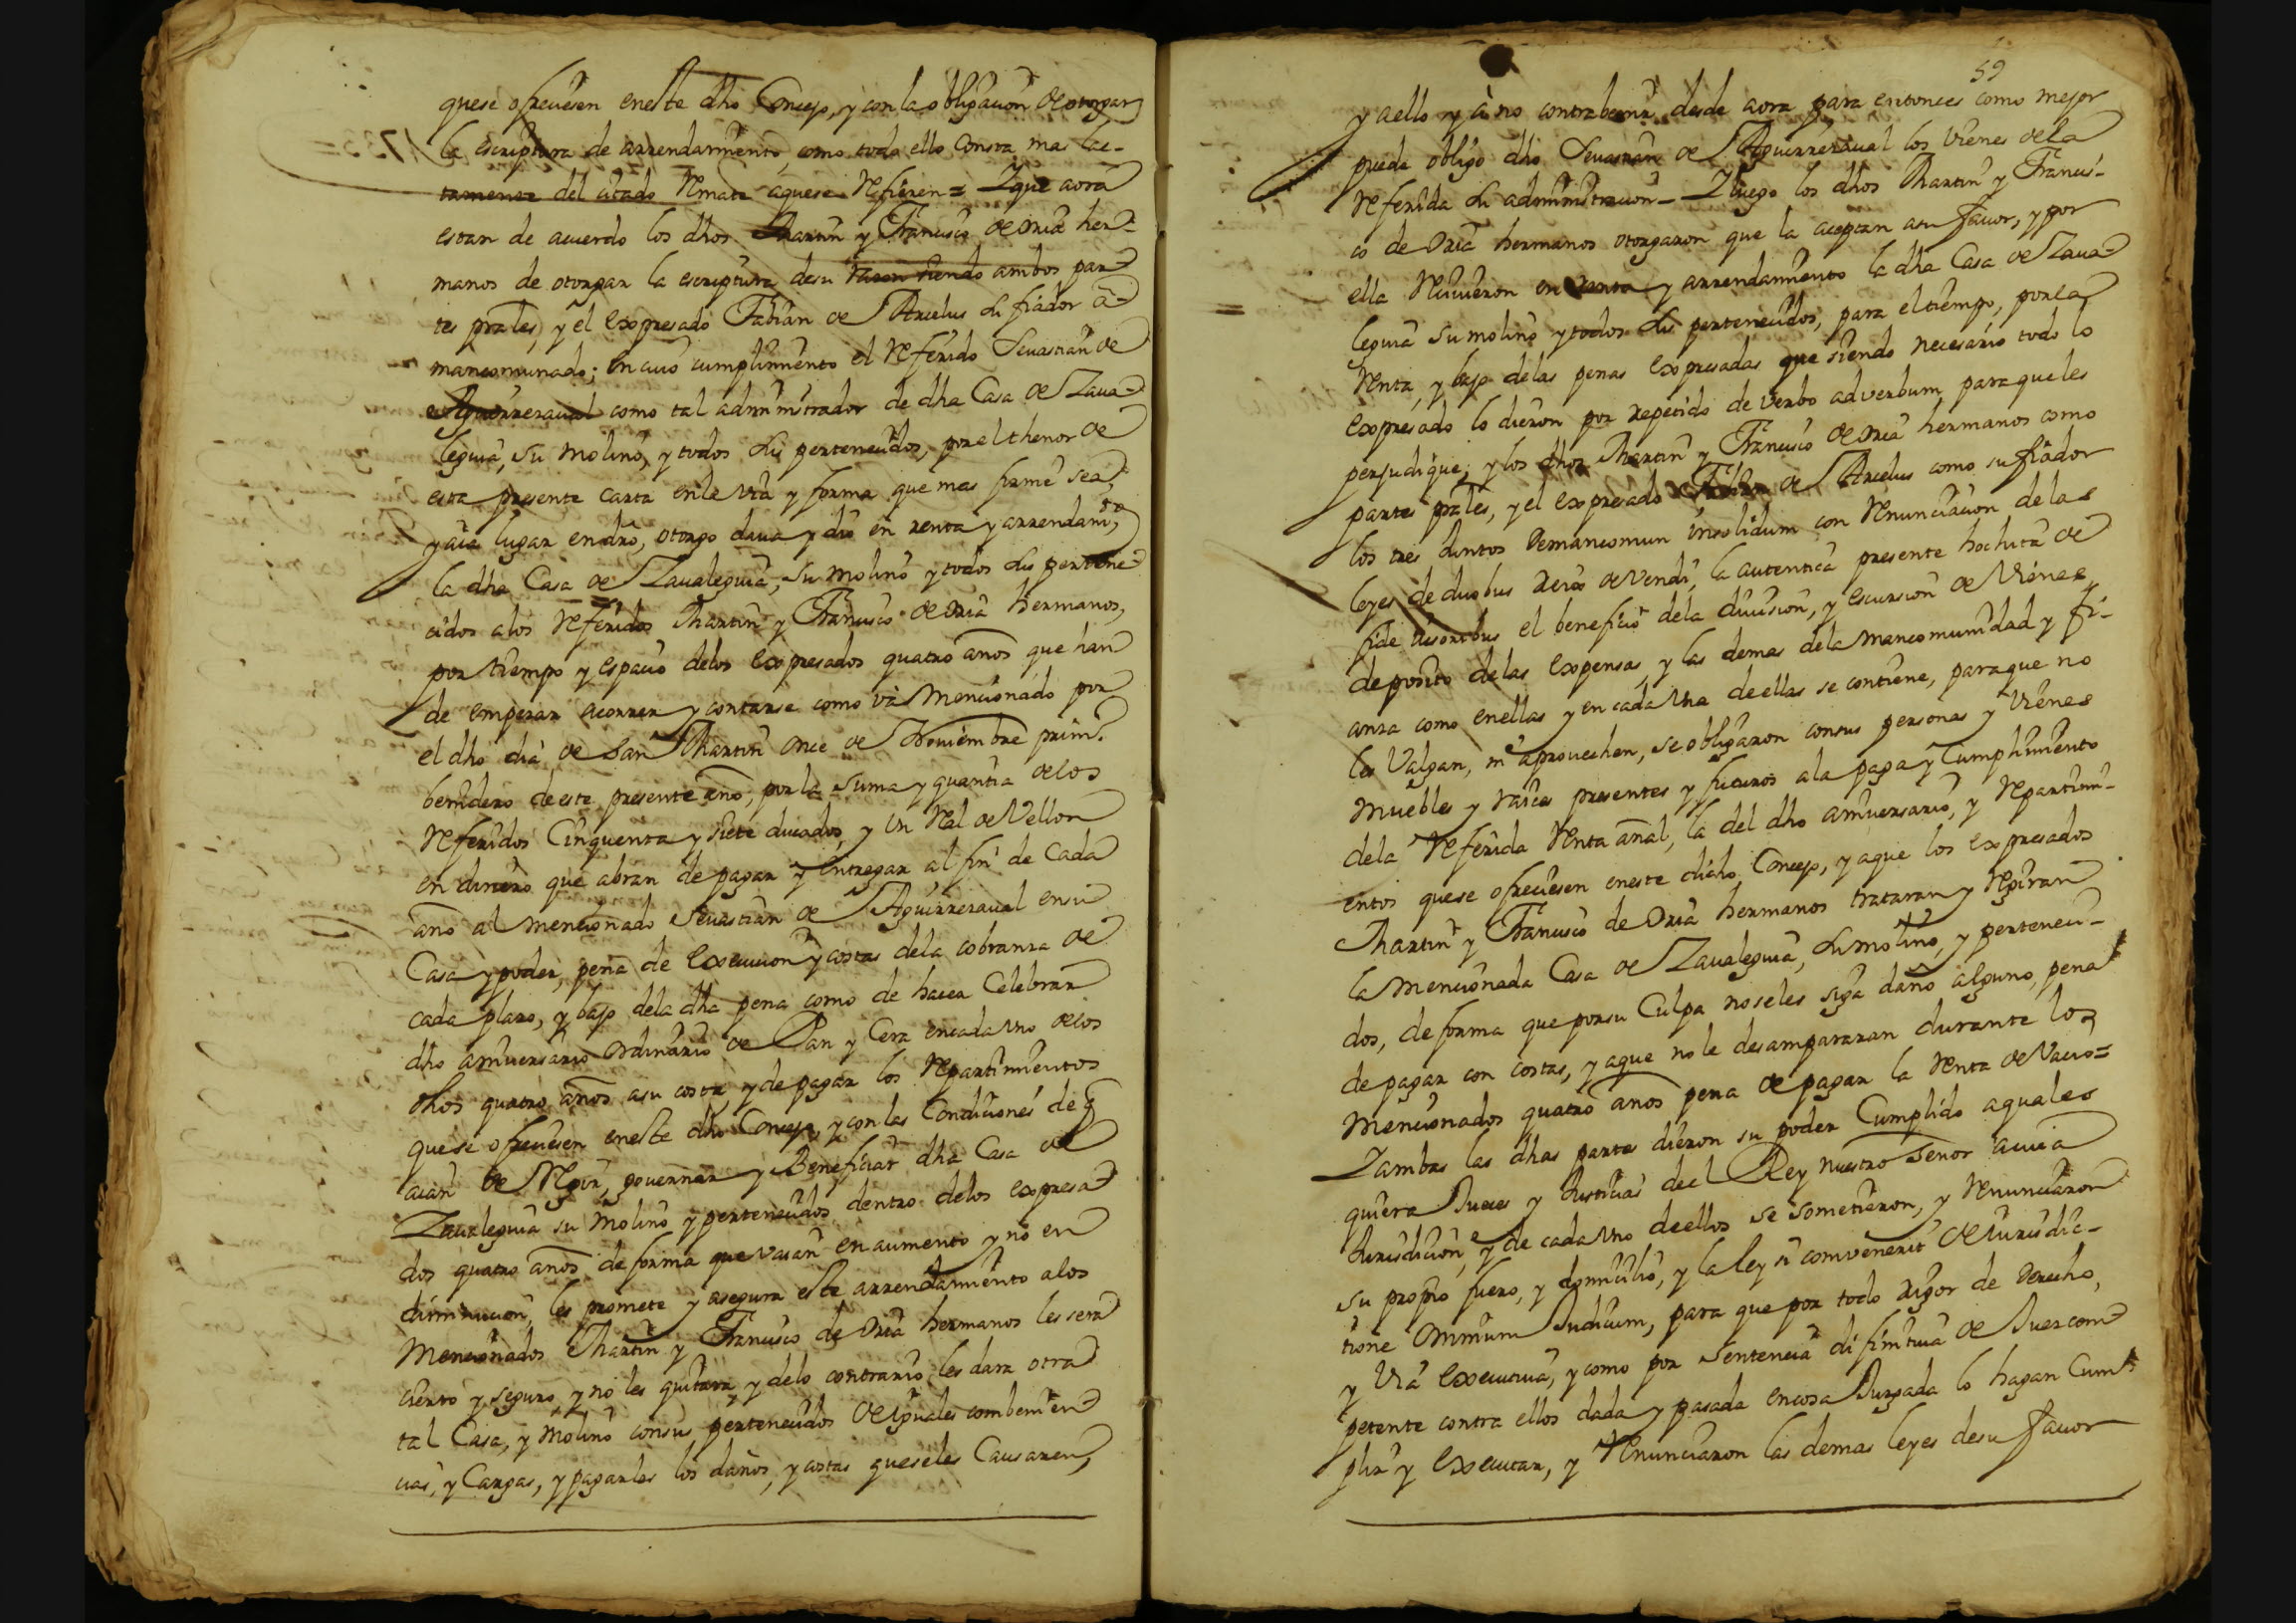 quese ofreciesen eneste dho Concejo, y con la obligacion de otorgar
la escriptura de arrendamiento, como todo ello consta mas lar-
tamente del citado Remate aquese Refieren = Y que aora
estan de acuerdo los dhos Martin y Francisco de Oria her-
manos de otorgar la escriptura desu razon siendo ambos par-
tes prales, y el expresado Fabian de Arcelus su fiador a-
mancomunado; en cuio cumplimiento el Referido Sevastian de
Aguirrezaual como tal administrador de dha Casa de Zaua-
leguia, su molino, y todos sus pertenecidos, por el thenor de
esta presente carta enla via y forma que mas firme sea,
y aia lugar en dro, otorgo daua y dio en renta y arrendamto
la dha Casa de Zaualeguia, su molino y todos sus pertene-
cidos alos Referidos Martin y Francisco de Oria hermanos,
por tiempo y espacio delos expresados quatro años que han
de empezar acorrer y contarse como va mencionado por
el dho dia de San Martin once de Noviembre prim.
benidero de este presente año, por la suma y quantia delos
Referidos Cinquenta y siete ducados, y un Real de Vellon
en dinero que abran de pagar y entregar al fin de cada
año al mencionado Sevastian de Aguirrezaual ensu
Casa y poder, pena de execucion y costas dela cobranza de
cada plazo, y bajo dela dha pena como de hacer Celebrar
dho aniversario ordinario de Pan y Cera encada uno delos
dhos quatro años asu costa, y de pagar los Repartimientos
quese ofreciesen eneste dho Concejo, y con las Condiciones de q
aian de Regir, governar y Beneficiar dha Casa de
Zaualeguia su molino y pertenecidos dentro delos expresa-
dos quatro años de forma que vaian en aumento y no en
diminucion, les promete y asegura este arrendamiento alos
Mencionados Martin y Francisco de Oria hermanos les sera
cierto y seguro, y no les quitara, y delo contrario les dara otra
tal Casa, y molino consus pertenecidos de iguales combenien-
cias, y Cargas, y pagarles los daños, y costas queseles Causaren,
59
y aello y à no contrabenir desde aora para entonces como mejor
puede obligo dho Sevastian de Aguirrezaual los vienes dela
Referida su administracion _ Y luego los dhos Martin y Francis-
co de Oria hermanos otorgaron que la aceptan asu fauor, y por
ella Recivieron en renta y arrendamiento la dha Casa de Zaua-
leguia su molino y todos sus pertenecidos, para el tiempo, por la
Renta, y bajo delas penas expresadas que siendo necesario todo lo
expresado lo dieron por repetido de verbo adverbum, para queles
perjudique; y los dhos Martin y Francisco de Oria hermanos como
partes prales, y el expresado Fabian de Arcelus como su fiador
los tres juntos Demancomun insolidum con Renunciacion delas
leyes de duobus Reos devendi, la autentica presente hochita de
fide iusoribus el beneficio dela division, y escursion de Vienes
deposito delas expensas, y las demas dela mancomunidad y fi-
anza como enellas y en cada una deellas se contiene, paraque no
les Valgan, ni aprovechen, se obligaron consus personas y vienes
Muebles y raices presentes y futuros ala paga y Cumplimiento
dela Referida Renta añal, la del dho aniversario, y Repartimi-
entos quese ofreciesen eneste dicho Concejo, y aque los expresados
Martin y Francisco de Oria hermanos trataran y Regiran
la Mencionada Casa de Zaualeguia, su molino, y perteneci-
dos, de forma que porsu Culpa noseles siga daño alguno, pena
de pagar con costas, y aque no le desampararan durante los
Mencionados quatro años pena de pagar la Renta de Vacio=
Y ambas las dhas partes dieron su poder Cumplido aquales
quiera Jueces y Justicias del Rey nuestro Señor acuia
Jurisdicion, y de cada uno deellos se sometieron, y Renunciaron
su propio fuero, y domicilio, y la ley si convenerit de iurisdic-
tione Omnium Judicum, para que por todo rigor de Derecho,
y Via executiva, y como por sentencia difinitiva de Juez com-
petente contra ellos dada y pasada encosa Juzgada lo hagan Cum-
plir y executar, y Renunciaron las demas leyes desu fauor